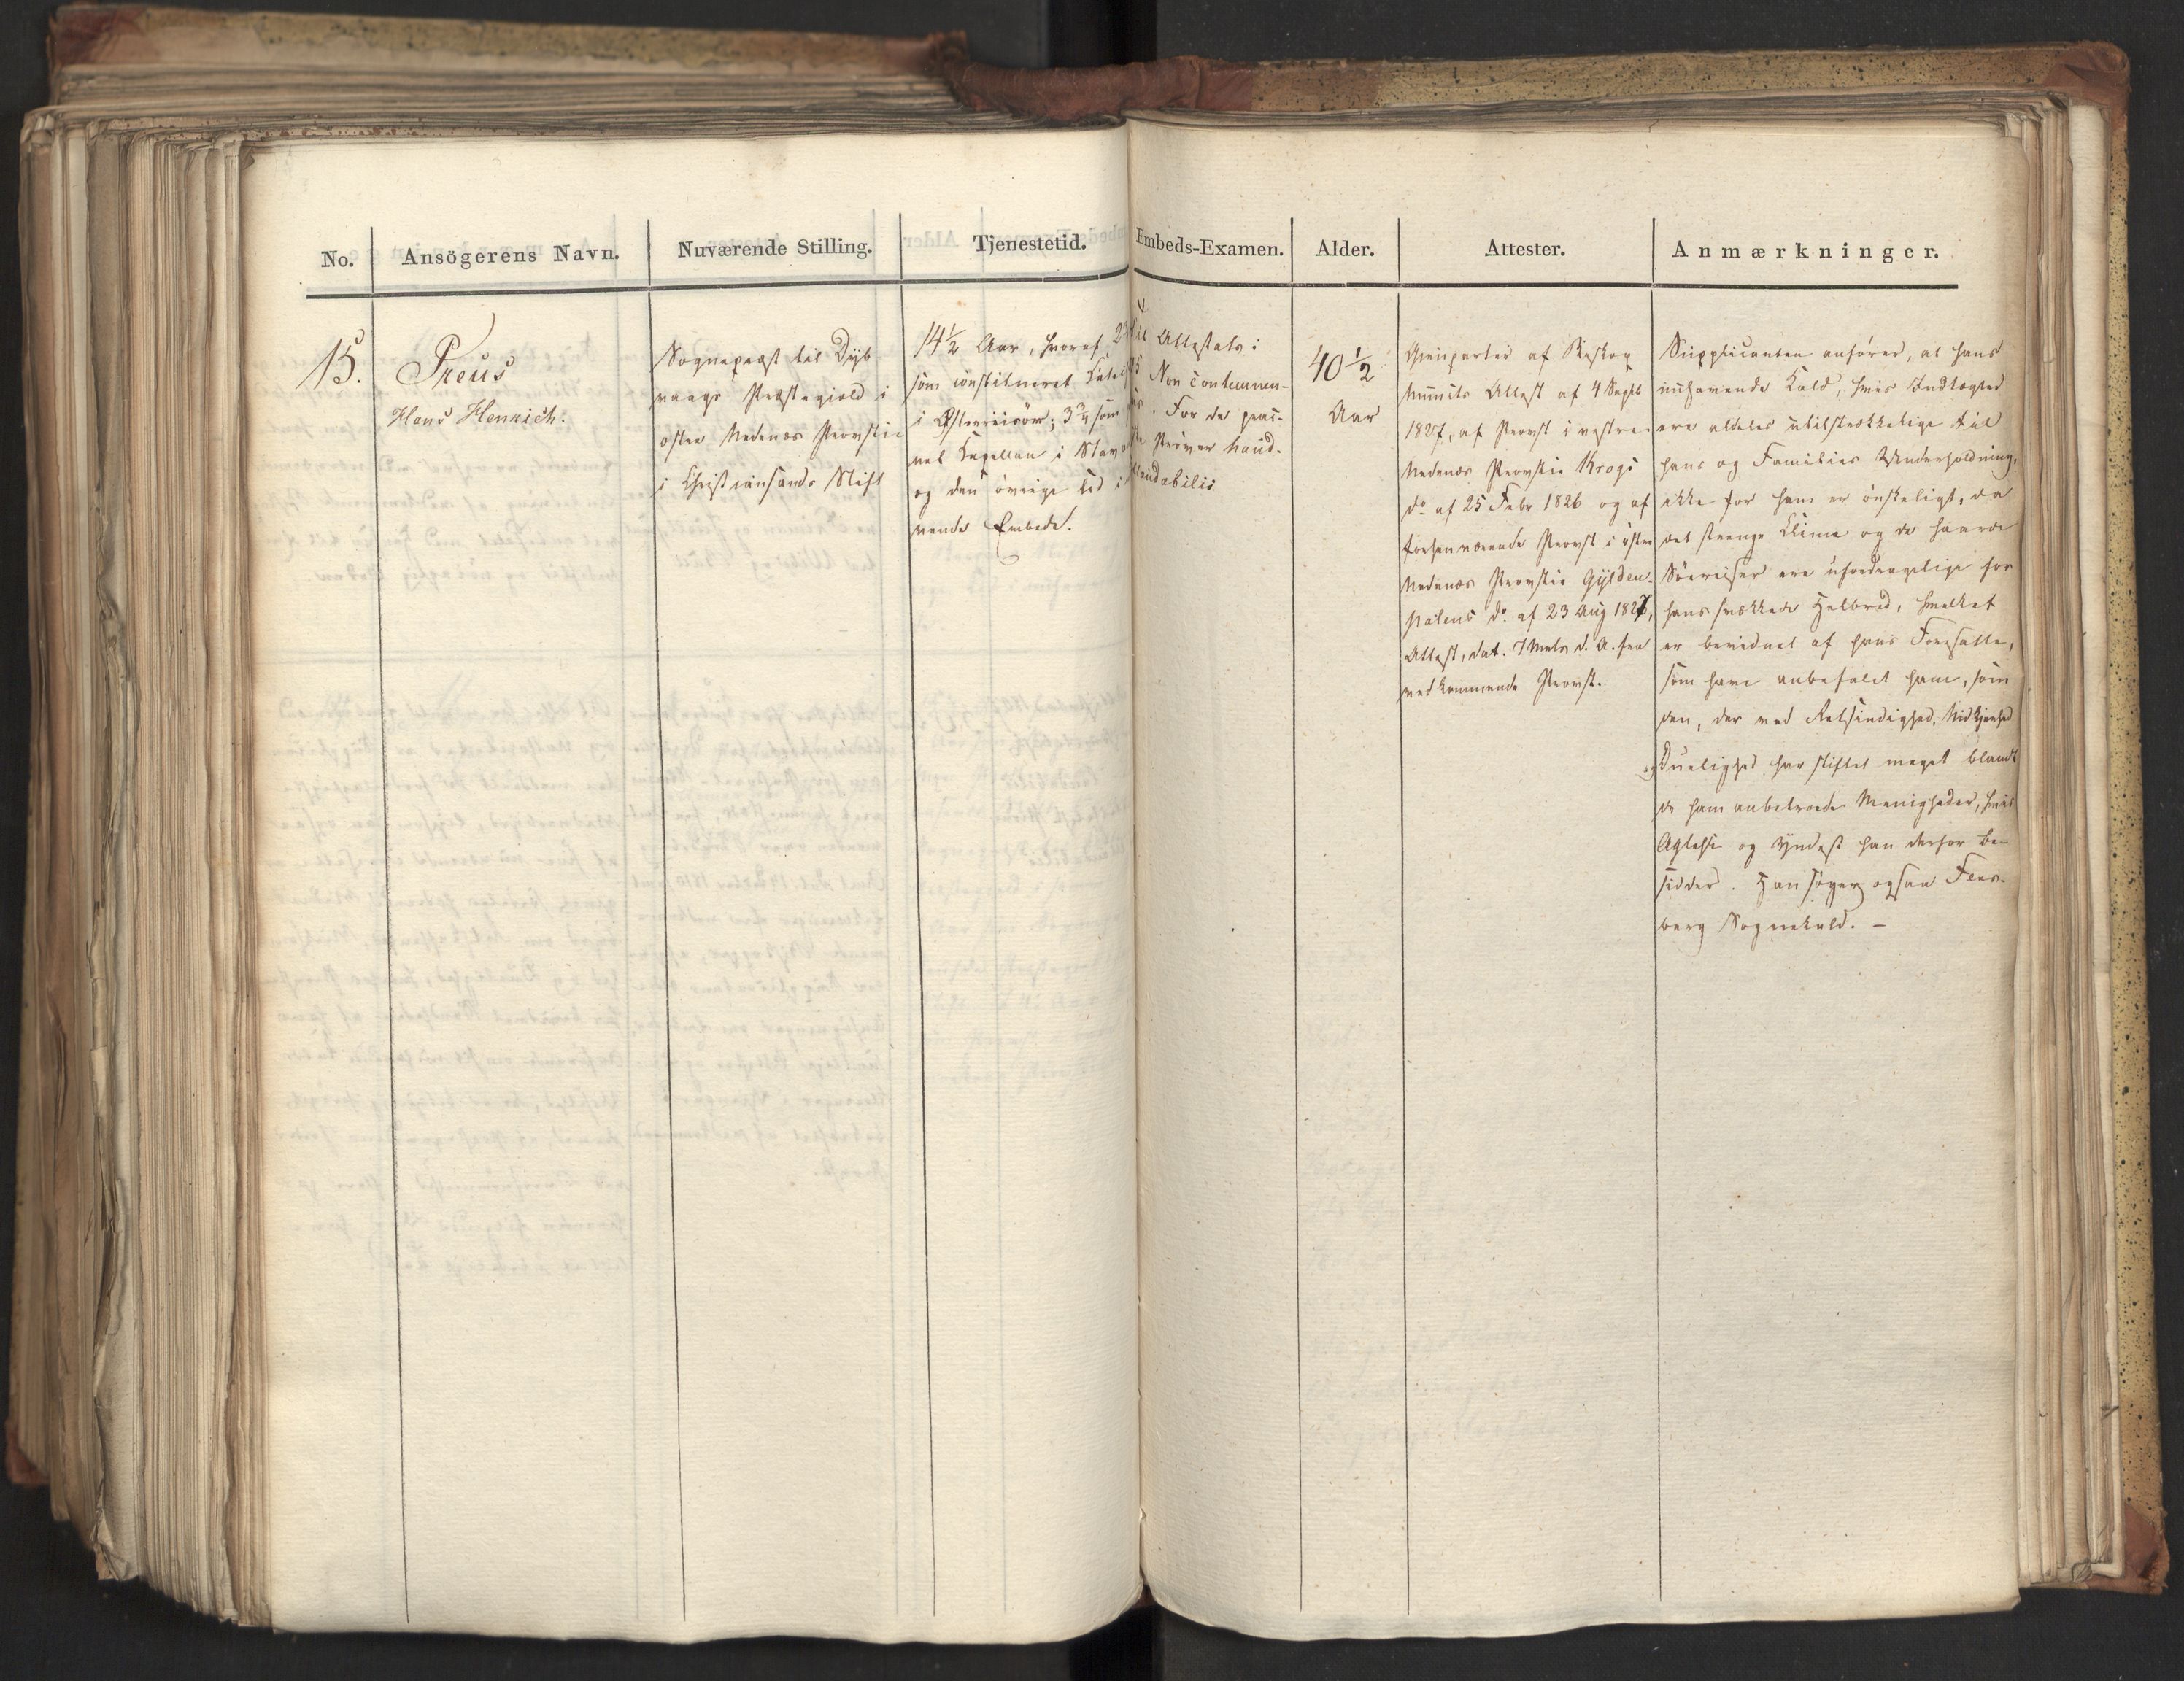 No.
Ansögerens Navn.
Nuværende Stilling.
Tjenestetid.
Embeds-Examen.
Alder.
Attester.
Anmærkninger.
15.
Preus
Hans Henrich.
Sognepræst til Dyb
vaags Præstegield i
østre Nedenæs Provstie
i Christiansands Stift
14½ Aar, hvoraf 2
som constitueret
i Østerriisöer; 3¾ som
nel Capellan i Stav
og den övrige Tid i
vende Embede.
Attestats:
Non contemnen-
. For de prac-
Prøver haud-
laudabilis
40½
Aar
Gienparter af Biskop
Munchs Attest af 4 Septb
1827, af Provst i vestre
Nedenæs Provstie Krogs
do af 25 Febr 1826 og af
forhenværende Provst i östre
Nedenæs Provstie Gylden-
palms do af 23 Aug 1827,
Attest, dat. 7 Marts d. A. fra
vedkommende Provst.
Supplicanten anfører, at hans
innehavende Kald, hvis Indtægter
ere aldeles utilstrækkelige til
hans og Families Underholdning,
ikke for ham er önskeligt, da
det strenge Clima og de haarde
Söereiser ere ufordragelige for
hans svækkede Helbred, hvilket
er bevidnet af hans Foresatte,
som have anbefalet ham, som
den, der ved Retsindighed, Nidkjerhed
og Duelighed har stiftet meget blandt
de ham anbetroede Menigheder, hvis
Agtelse og Yndest han derfor be-
sidder. Han søger ogsaa Fles-
berg Sognekald. –